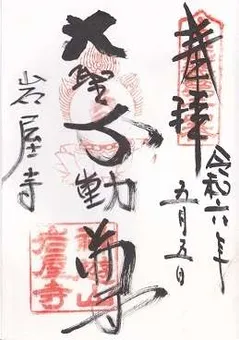 奉拝
令和六年
五月五日
大聖不動尊
岩屋寺
岩屋寺